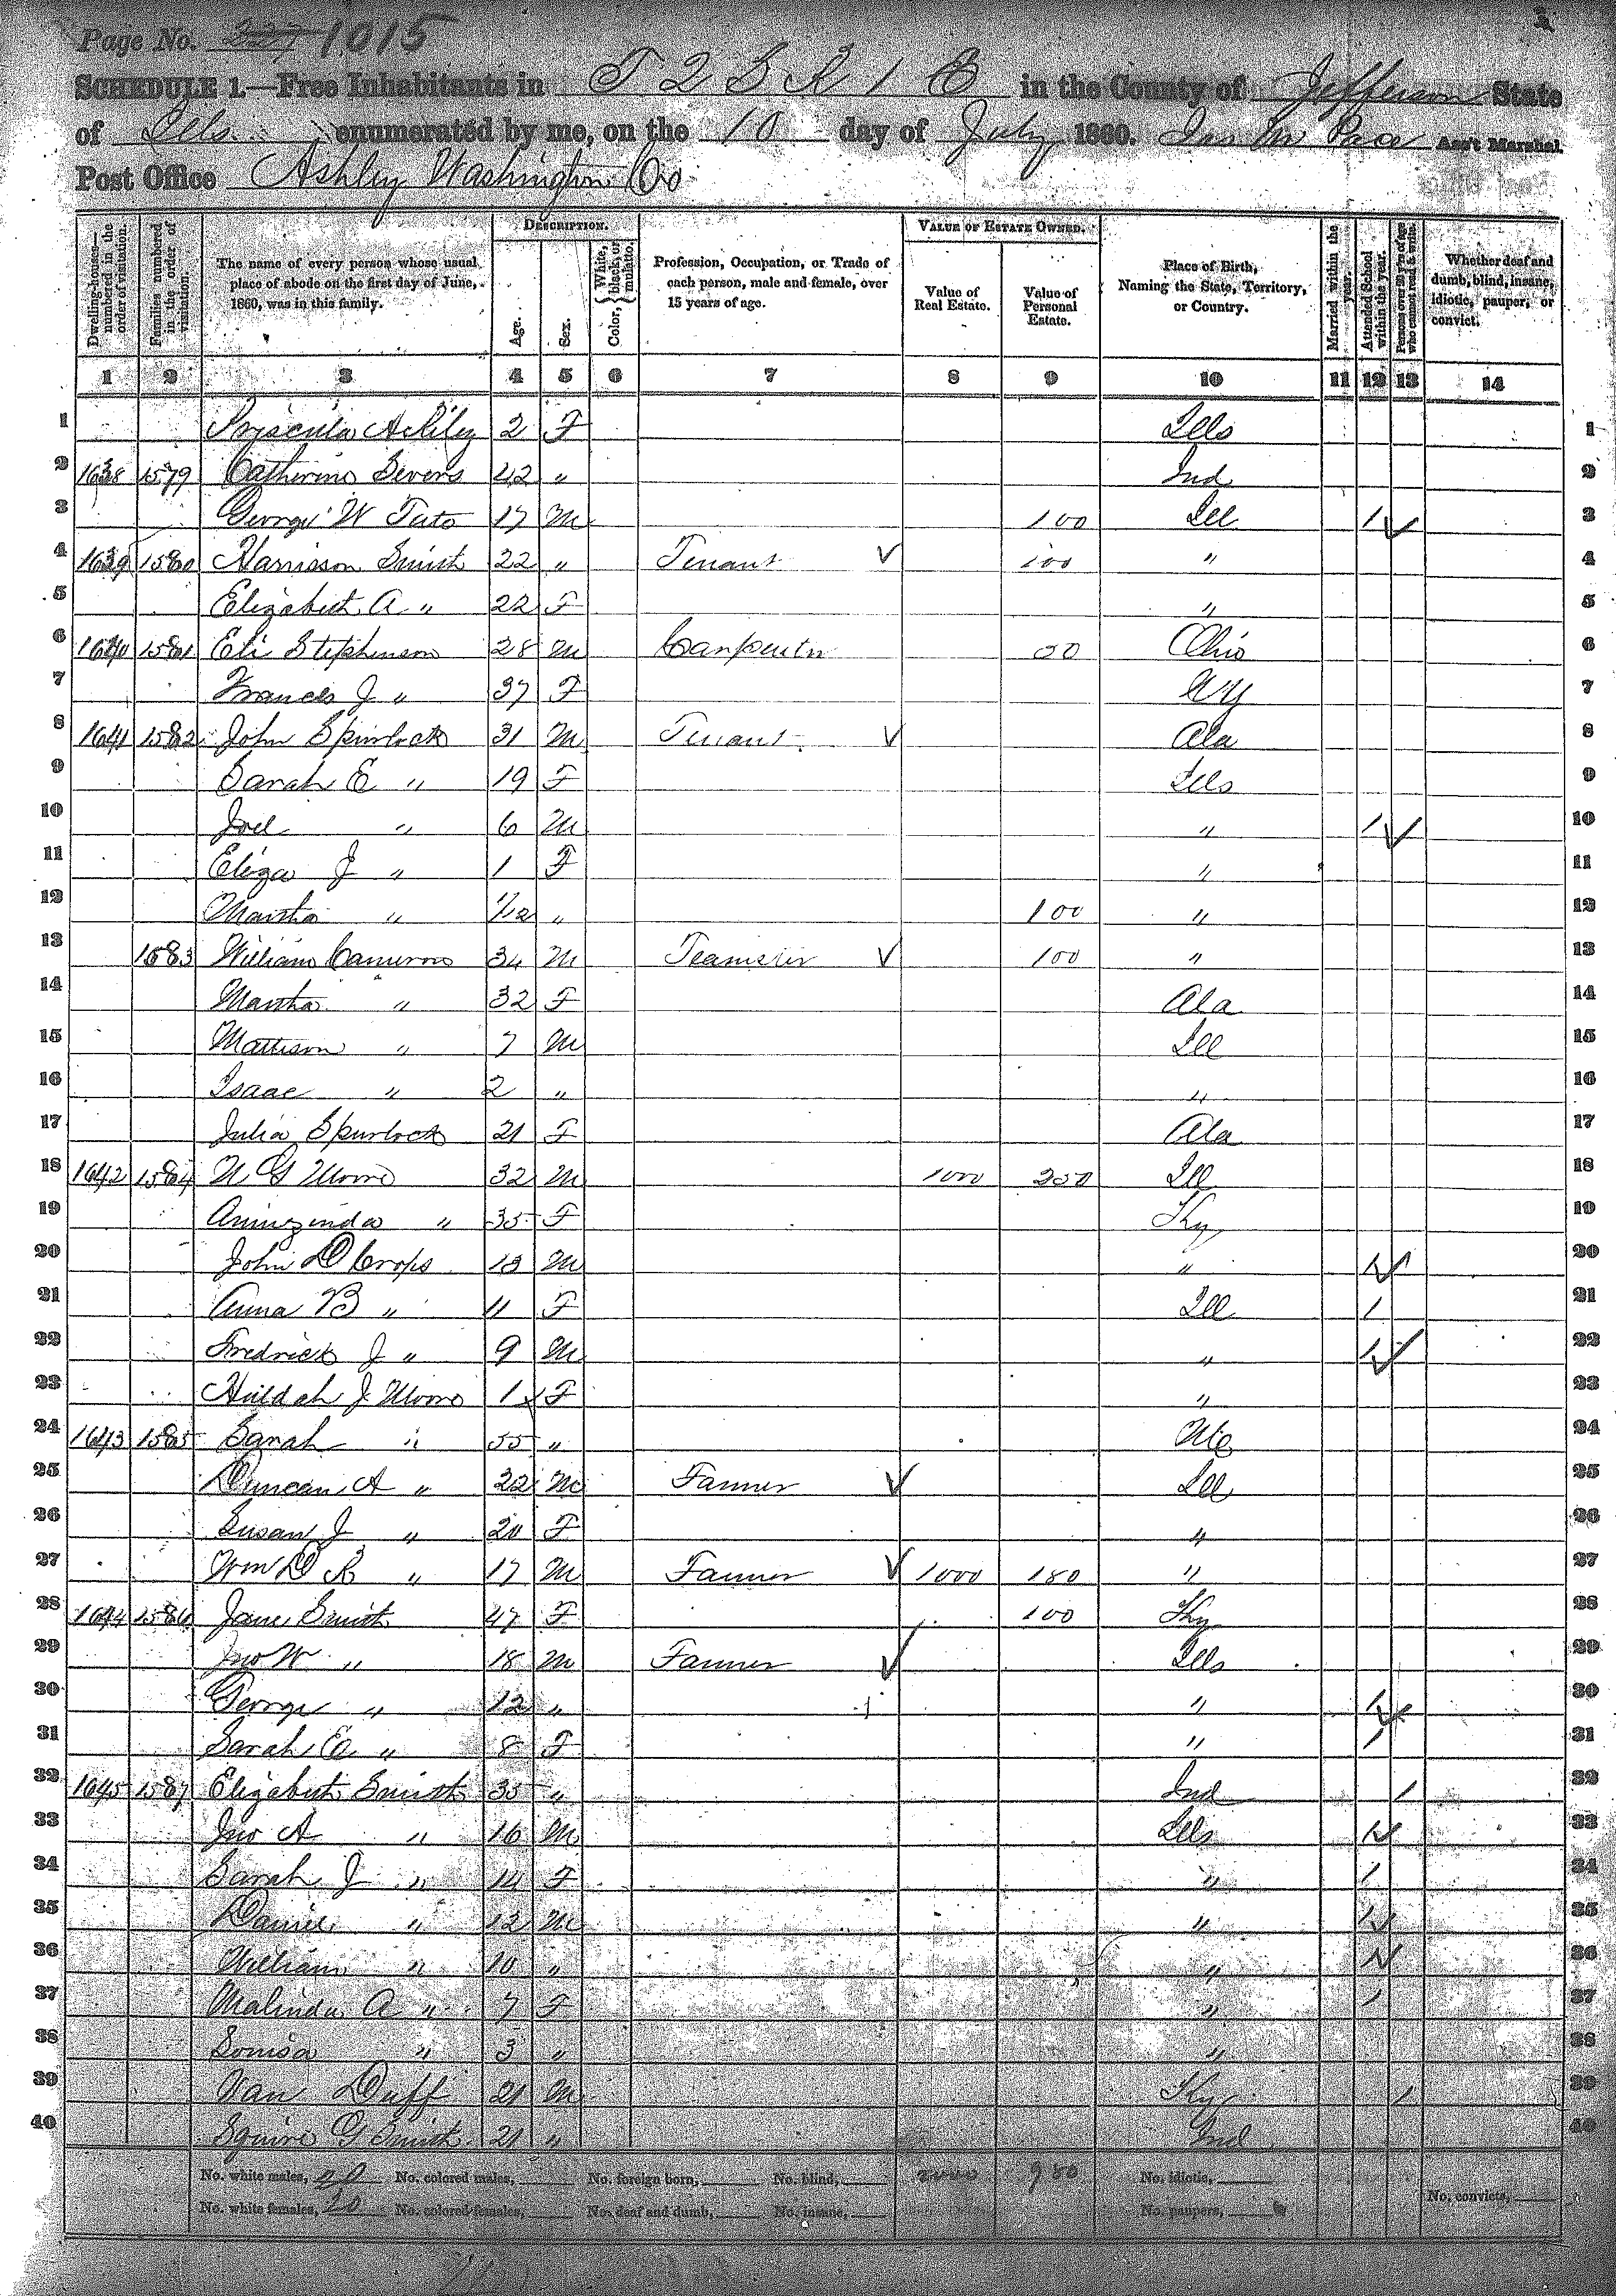 Page No. 327 1015
SCHEDULE 1.—Free Inhabitants in T 2 S R 1 E in the County of Jefferson State
of Ills. enumerated by me, on the 10 day of July 1860. Jas M Pace Ass't Marshal.
Post Office Ashley Washington Co
Dwelling-houses—numbered in the order of visitation. Families numbered in the order of visitation. The name of every person whose usual place of abode on the first day of June, 1860, was in this family. DESCRIPTION. Age. Sex. Color, {White, black, or mulatto. Profession, Occupation, or Trade of each person, male and female, over 15 years of age. VALUE OF ESTATE OWNED. Value of Real Estate. Value of Personal Estate. Place of Birth, Naming the State, Territory, or Country. Married within the year. Attended School within the year. Persons over 20 y'rs of age who cannot read & write. Whether deaf and dumb, blind, insane, idiotic, pauper, or convict.
1 2 3 4 5 6 7 8 9 10 11 12 13 14
1 Priscilla 2 F Ills 1
2 1638 1579 Catherine Severs 42 " Ind 2
3 George W Tate 17 M 100 Ill 1 3
4 1639 1580 Harrisson Smith 22 " Tenant 100 " 4
5 Elizabeth A " 22 F " 5
6 1640 1581 Eli Stephenson 28 M Carpenter 50 Ohio 6
7 Frances J " 37 F NY 7
8 1641 1582 John Spurlock 31 M Tenant Ala 8
9 Sarah E " 19 F Ills 9
10 Joel " 6 M " 1 10
11 Eliza J " 1 F " 11
12 Martha " 1/12 " 100 " 12
13 1583 William Cameron 34 M Teamster 100 " 13
14 Martha " 32 F Ala 14
15 Mattison " 7 M Ill 15
16 Isaac " 2 " " 16
17 Julia Spurlock 21 F Ala 17
18 1642 1584 N G Moore 32 M 1000 250 Ill 18
19 " 35 F Ky 19
20 John D Crops 13 M " 1 20
21 Anna B " 11 F Ill 1 21
22 Fredrick J " 9 M " 1 22
23 Huldah J Moore 1 F " 23
24 1643 1585 Sarah " 55 " 24
25 Duncan A " 22 M Farmer Ill 25
26 Susan J " 20 F " 26
27 Wm D R " 17 M Farmer 1000 180 " 27
28 1644 1586 Jane Smith 47 F 100 Ky 28
29 Jno W " 18 M Farmer Ills 29
30 George " 12 " " 1 30
31 Sarah E " 8 F " 1 31
32 1645 1587 Elizabeth Smith 35 " Ind 1 32
33 Jno A " 16 M Ills 1 33
34 Sarah J " 14 F " 1 34
35 Daniel " 12 M " 1 35
36 William " 10 " " 1 36
37 Malinda A " 7 F " 1 37
38 Louisa " 3 " " 38
39 Van Duff 21 M Ky 1 39
40 Squire G Smith 21 " Ind 40
No. white males, 20 No. colored males, No. foreign born, No. blind, 2000 980 No. idiotic,
No. white females, 20 No. colored females, No. deaf and dumb, No. insane, No. paupers, No. convicts,